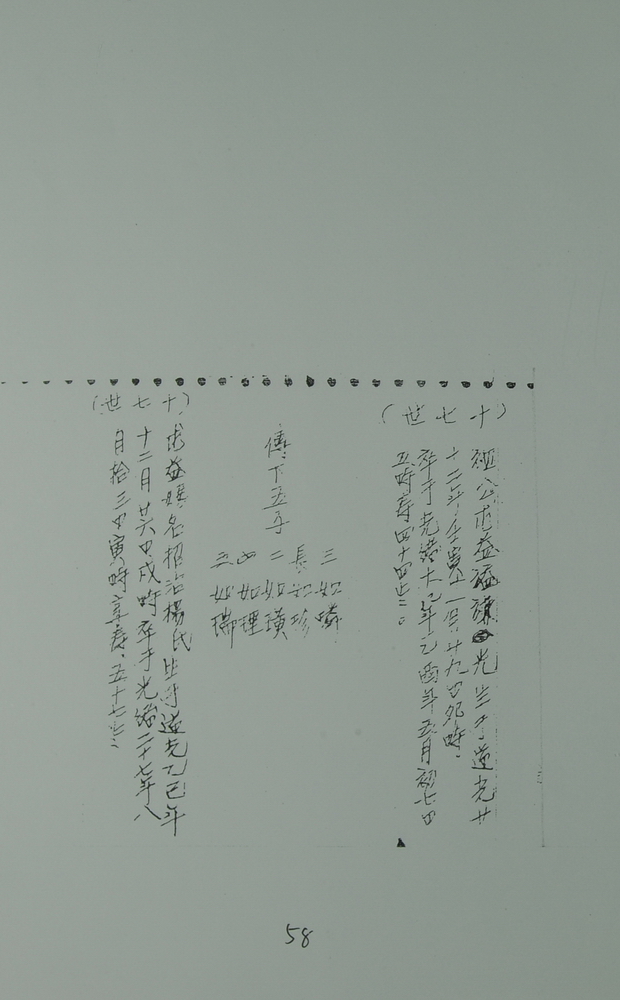 (十七世)
祖公求益謚謙光生于道光廿
十二年壬寅十一月廿九日卯時
卒于光緒十一年乙酉年五月初七日
丑時壽四十四歲
傳下五子
三如璘
長如珍
二如璜
四如理
五如瑞
(十七世)
求益娘名招治楊氏生于道光乙巳年
十二月廿六日戌時卒于光緒二十七年八
月拾三日寅時享壽五十七歲
58